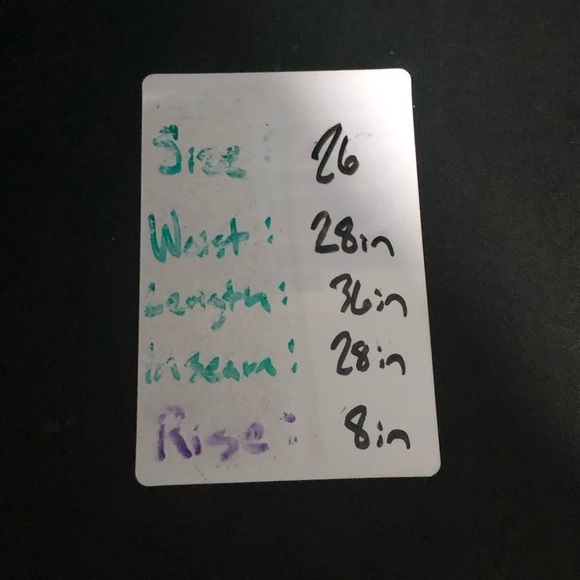 Size: 26
Waist: 28in
Length: 36in
inseam: 28in
Rise: 8in